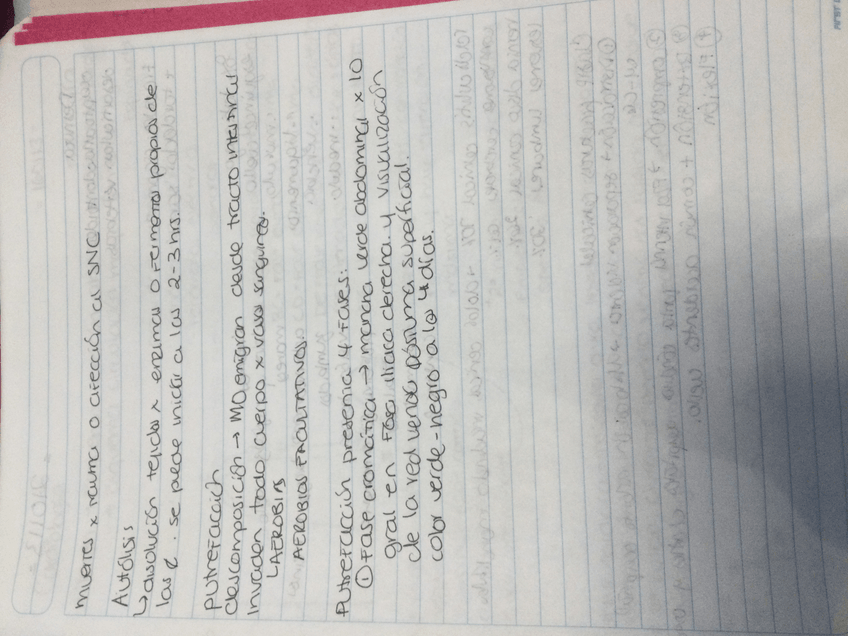 muertes x trauma o afección al SNC
Autólisis
↳ disolución tejidos x enzimas o fermentos propios de
las c. se puede iniciar a las 2-3 hrs.
putrefacción
descomposición → MO emigran desde tracto intestinal
invaden todo cuerpo x vasos sanguíneos.
↳ AEROBIOS
AEROBIOS FACULTATIVOS
Putrefacción presenta 4 fases:
① Fase cromática → mancha verde abdominal x 10
gral en Fosa iliaca derecha y visualización
de la red venosa póstuma superficial.
color verde-negro a los 4 días.